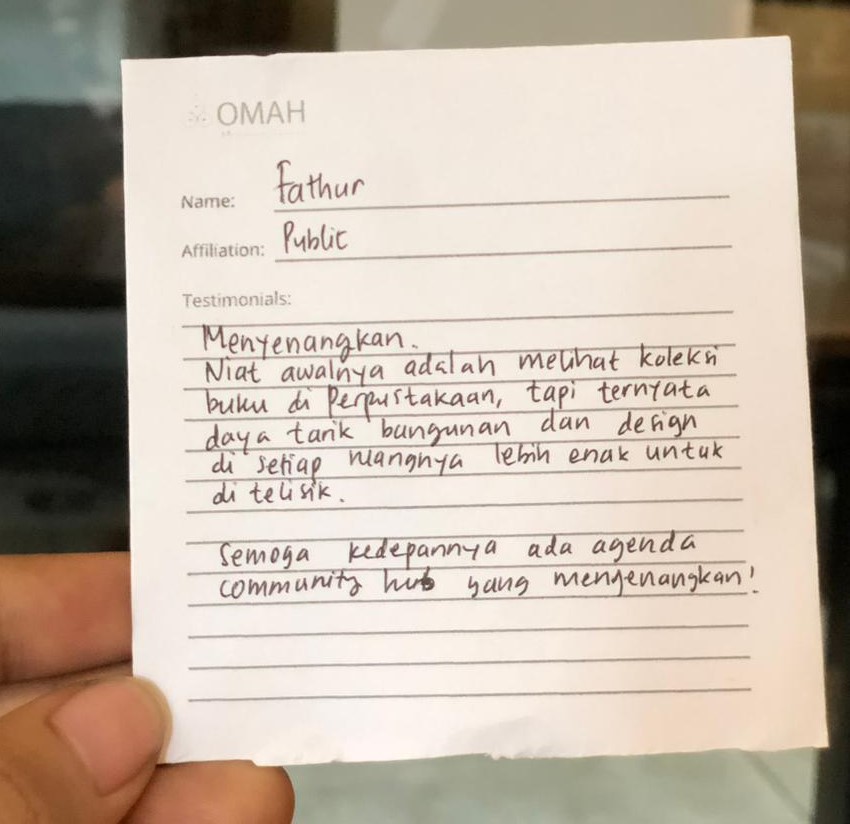 OMAH
Name: Fathur
Affiliation: Public
Testimonials:
Menyenangkan.
Niat awalnya adalah melihat koleksi
buku di Perpustakaan, tapi ternyata
daya tarik bangunan dan design
di setiap ruangnya lebih enak untuk
di telisik.
Semoga kedepannya ada agenda
community hub yang menyenangkan!